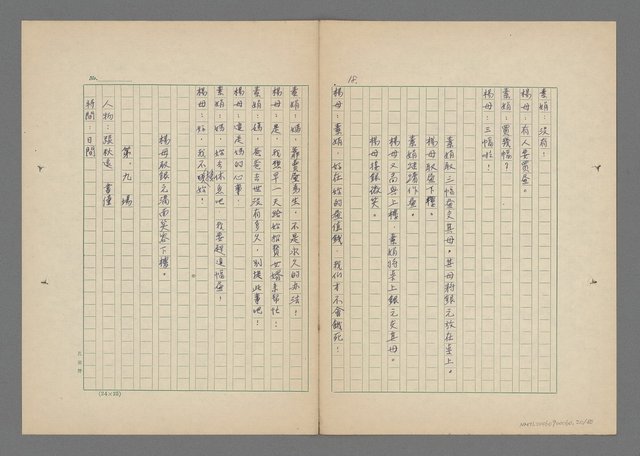 18.
素娟：沒有！
楊母：有人要買畫。
素娟：買幾幅？
楊母：三幅啦！
素娟取三幅畫交其母。其母將銀元放在桌上。
楊母取畫下樓。
素娟繼續作畫。
楊母又高興上樓，素娟將桌上銀元交其母。
楊母接銀微笑。
楊母：素娟，好在妳的畫值錢，我们才不會餓死！
素娟：媽，靠賣畫為生，不是永久的办法！
楊母：是，我想早一天給妳招贅女婿來幫忙！
素娟：媽，爸爸去世沒有多久，別提此事吧！
楊母：這是媽的心事！
素娟：媽，妳去休息吧，我要趕這幅畫！
楊母：好，我不擾妳！
楊母取銀元滿面笑容下樓。
第九場
人物：張秋遠 書僮
時間：日間
No.
(24×25)